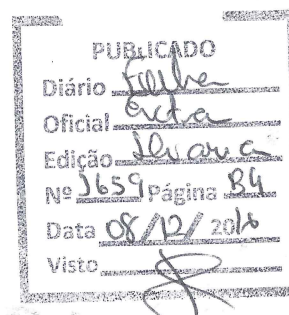 PUBLICADO
Diário Folha
Oficial Extra
Edição
Nº 1659 Página B4
Data 08/12/2016
Visto